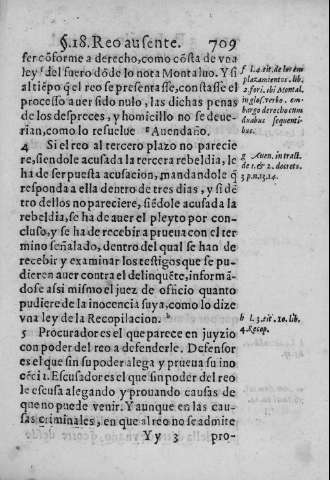 §.18. Reo ausente. 709
ser cõforme a derecho, como cõsta de vna
ley f del fuero dõde lo nota Montaluo. Y si
al tiẽpo q̃ el reo se presentasse, constasse el
processo auer sido nulo, las dichas penas
de los despreces, y homicillo no se deue-
rian, como lo resuelue g Auendaño.
4 Si el reo al tercero plazo no parecie
re, siendole acusada la tercera rebeldia, le
ha de ser puesta acusacion, mandandole q̃
responda a ella dentro de tres dias, y si dẽ
tro dellos no pareciere, siẽdole acusada la
rebeldia, se ha de auer el pleyto por con-
cluso, y se ha de recebir a prueua con el ter
mino señalado, dentro del qual se han de
recebir y examinar los testigos que se pu-
dieren auer contra el delinquẽte, informã-
dose assi mismo el juez de oficio quanto
pudiere de la inocencia suya, como lo dize
vna ley de la Recopilacion. h
5 Procurador es el que parece en juyzio
con poder del reo a defenderle. Defensor
es el que sin su poder alega y prueua su ino
cẽcia. Escusador es el que sin poder del reo
le escusa alegando y prouando causas de
que no puede venir. Y aunque en las cau-
sas criminales, en que al reo no se admite
Y y 3 pro-
f l. 4. tit. de los em
plazamientos. lib.
2. fori. ibi Montal.
in glos. verbo. em-
bargo de derecho cum
duabus sequenti-
bus.
g Auen. in tract.
de 1. & 2. decreto.
3 p. n. 13. 14.
h l. 3. tit. 10. lib.
4. Recop.